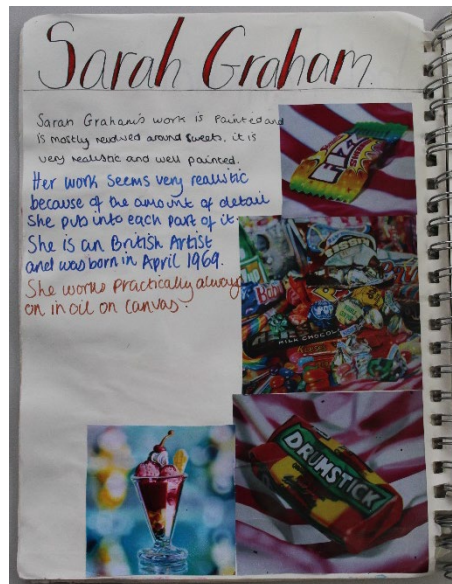 Sarah Graham.
Sarah Graham's work is Painted and
is mostly revolved around sweets, it is
very realistic and well painted.
Her work seems very realistic
because of the amount of detail
She puts into each part of it.
She is an British Artist
and was born in April 1969.
She works practically always
on in oil on canvas.
FIZZ
MILK CHOCOL
DRUMSTICK